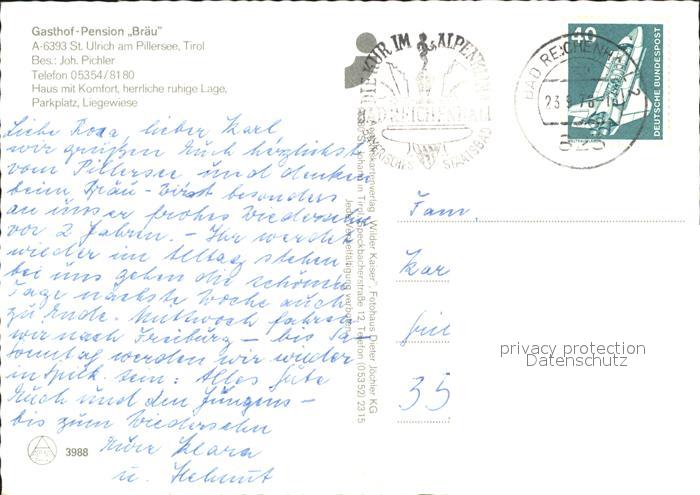 Gasthof-Pension „Bräu"
A-6393 St. Ulrich am Pillersee, Tirol
Bes.: Joh. Pichler
Telefon 05354/8180
Haus mit Komfort, herrliche ruhige Lage,
Parkplatz, Liegewiese
Liebe Rosa, lieber Karl
wir grüßen Euch herzlichst
vom Pillersee und denken
beim Bräu-Wirt besonders
an unser frohes Wiedersehn
vor 2 Jahren. - Ihr werdet
wieder im Alltag stehen
bei uns gehen die schönen
Tage nächste Woche auch
zu Ende. Mittwoch fahren
wir nach Freiburg - bis
Sonntag werden wir wieder
in sein: Alles Gute
Euch und den Jüngens -
bis zum Wiedersehn
Eure Klara
u. Helmut
3988
Ansichtskartenverlag „Wilder Kaiser", Fotohaus Dieter Jöchler KG
St. Johann in Tirol, Speckbacherstraße 12, Telefon (05352) 2315
Jede Vervielfältigung verboten
DIE KUR IM ALPENKLIMA
BAD REICHENHALL
BAYERISCHES STAATSBAD
BAD REICHENHALL 2
23.9.78
823
40
DEUTSCHE BUNDESPOST
Fam.
Kar
35
privacy protection
Datenschutz